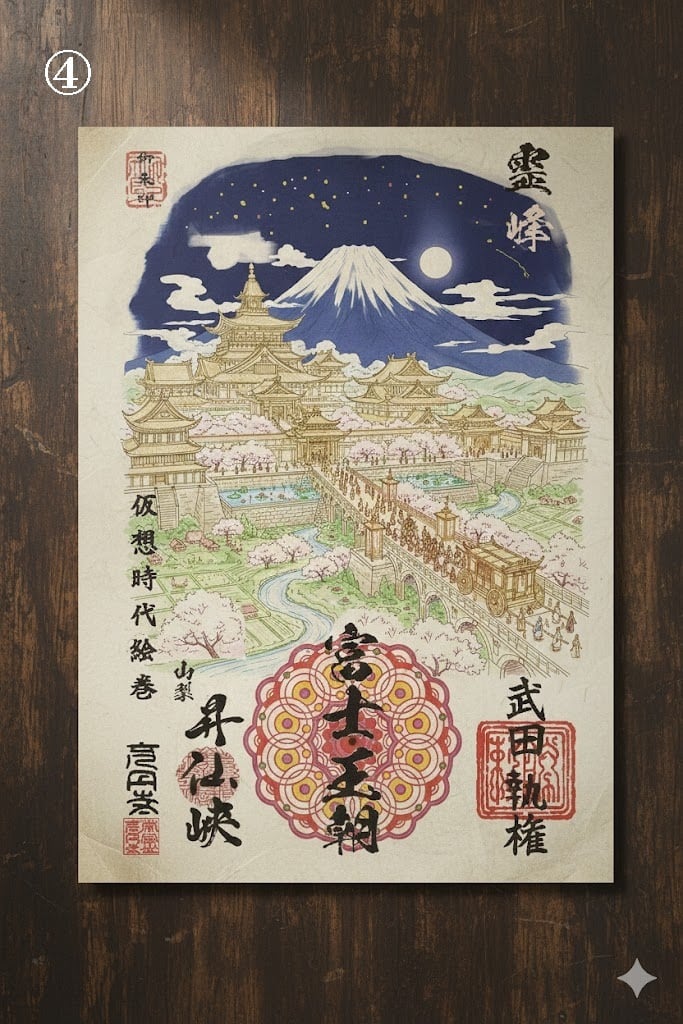 ④
霊峰
御朱印
武田執権
富士王朝
山梨
昇仙峡
仮想時代絵巻